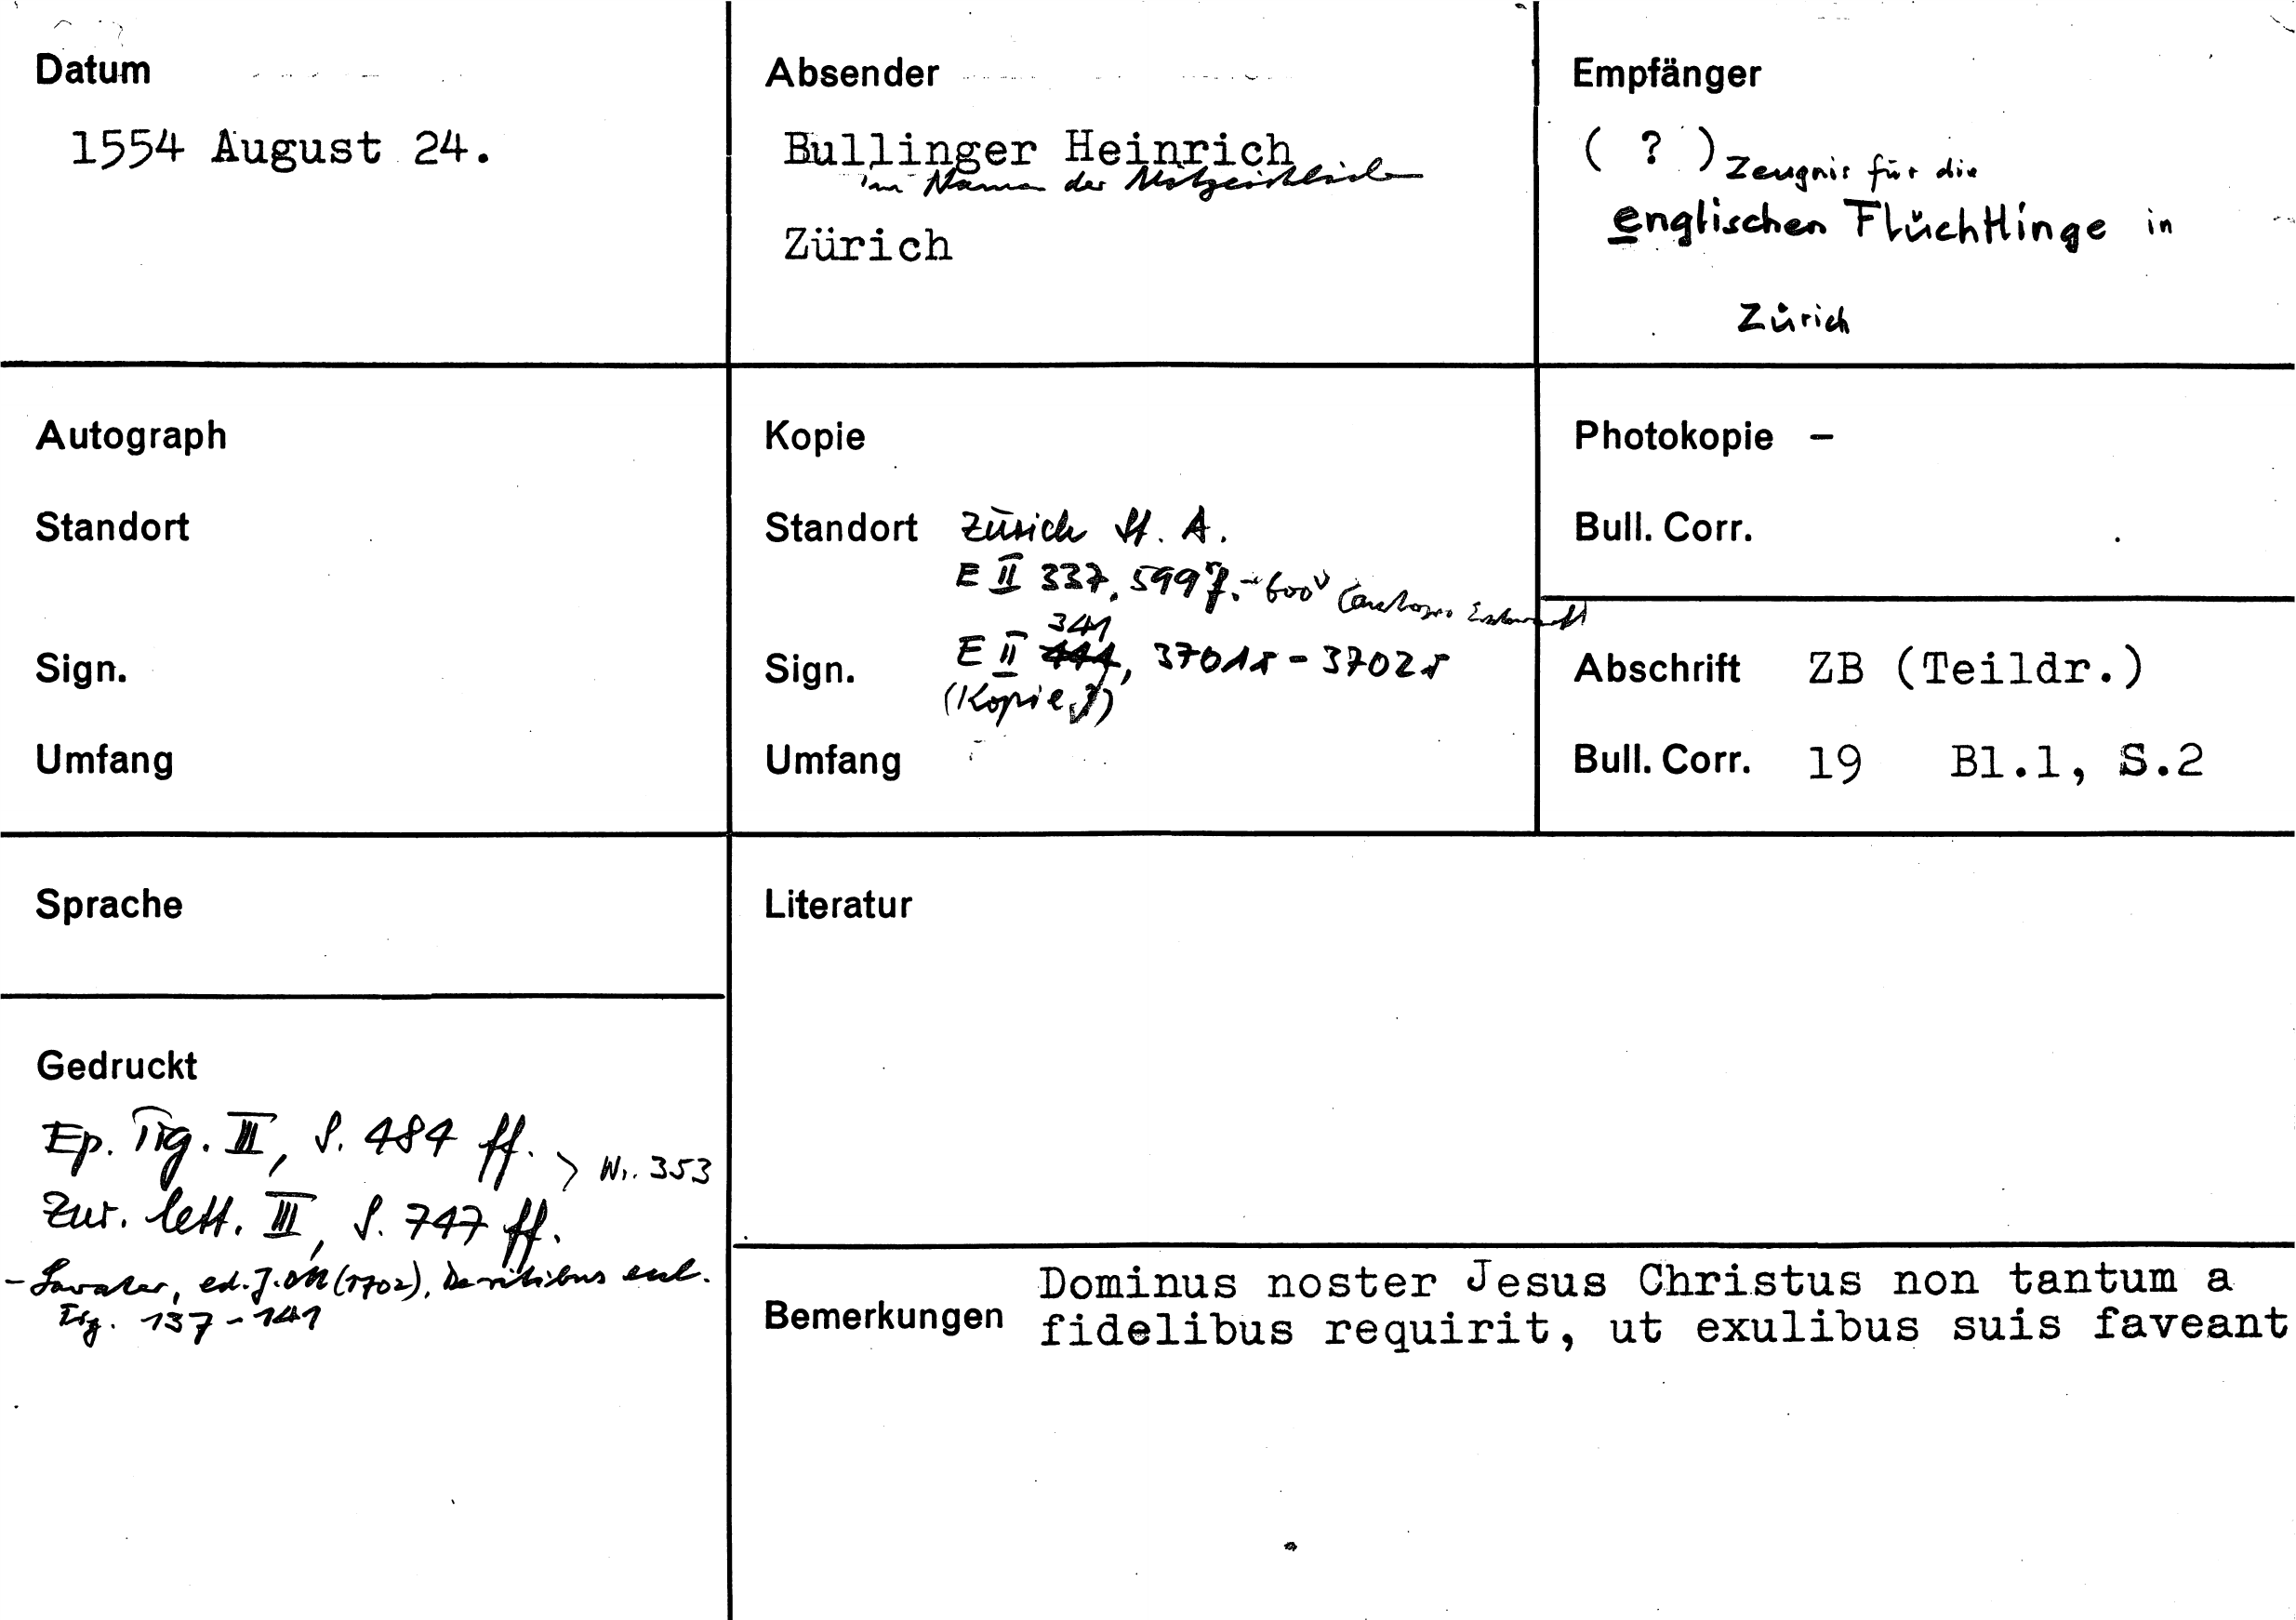 Datum
1554 August 24.
Absender
Bullinger Heinrich
im Namen der Mitgeistlichen
Zürich
Empfänger
( ? ) Zeugnis für die
englischen Flüchtlinge in
Zürich
Autograph
Standort
Sign.
Umfang
Kopie
Standort Zürich St. A.
E II 337, 599r.-600v (autogr. Entwurf)
341
Sign. E II 444, 3701r - 3702r
(Kopie)
Umfang
Photokopie –
Bull. Corr.
Abschrift ZB (Teildr.)
Bull. Corr. 19 Bl.1, S.2
Sprache
Literatur
Gedruckt
Ep. Tig. III, S. 484 ff. > Nr. 353
Zur. lett. III, S. 747 ff.
- Lavater, ed. J. Ott (1702), De ritibus eccl.
Tig. 137-141
Bemerkungen
Dominus noster Jesus Christus non tantum a
fidelibus requirit, ut exulibus suis faveant